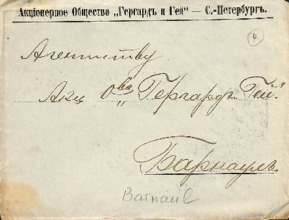 Акціонерное Общество „Гергардъ и Гей“ — С.-Петербургъ.
4
Агентству
Акц О-ва „Гергардъ Гей“
Барнаулъ
Barnaul